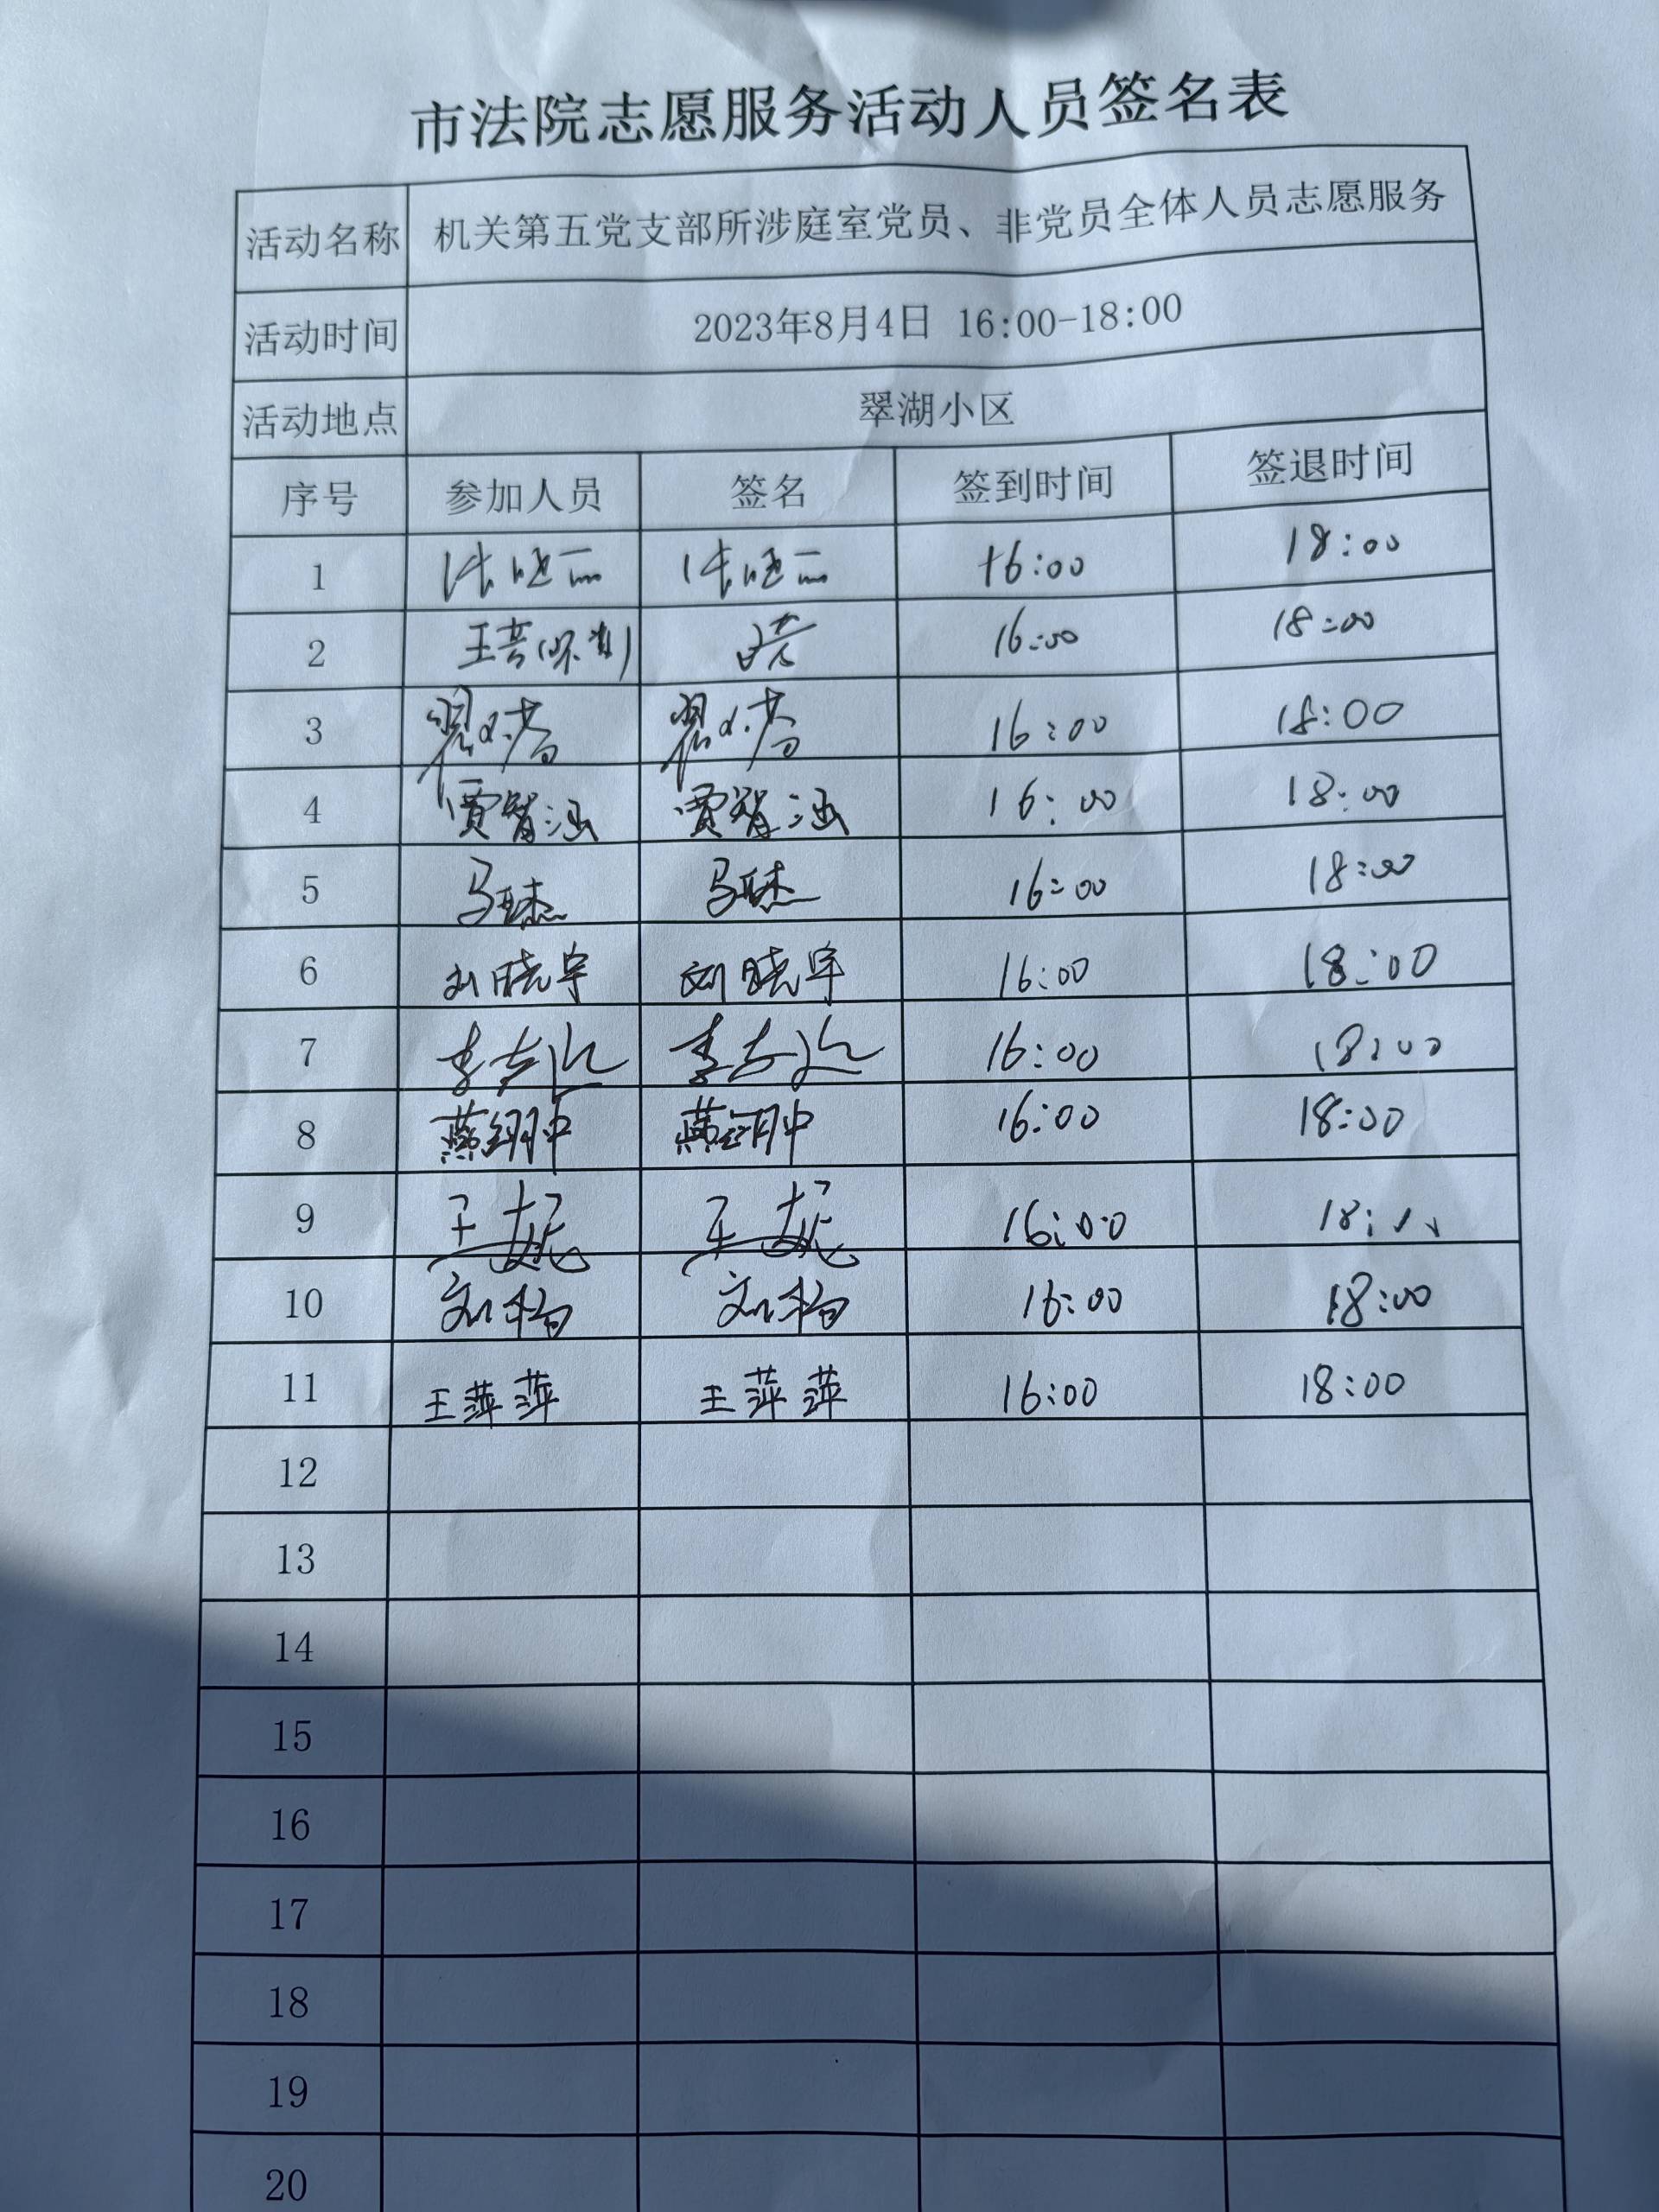 市法院志愿服务活动人员签名表
活动名称 机关第五党支部所涉庭室党员、非党员全体人员志愿服务
活动时间 2023年8月4日 16:00-18:00
活动地点 翠湖小区
序号 参加人员 签名 签到时间 签退时间
1 16:00 18:00
2 16:00 18:00
3 16:00 18:00
4 贾智涵 贾智涵 16:00 18:00
5 马 马 16:00 18:00
6 刘晓宇 刘晓宇 16:00 18:00
7 李 李 16:00 18:00
8 燕翔冲 燕翔冲 16:00 18:00
9 王 王 16:00 18:
10 刘杨 刘杨 16:00 18:00
11 王萍萍 王萍萍 16:00 18:00
12
13
14
15
16
17
18
19
20